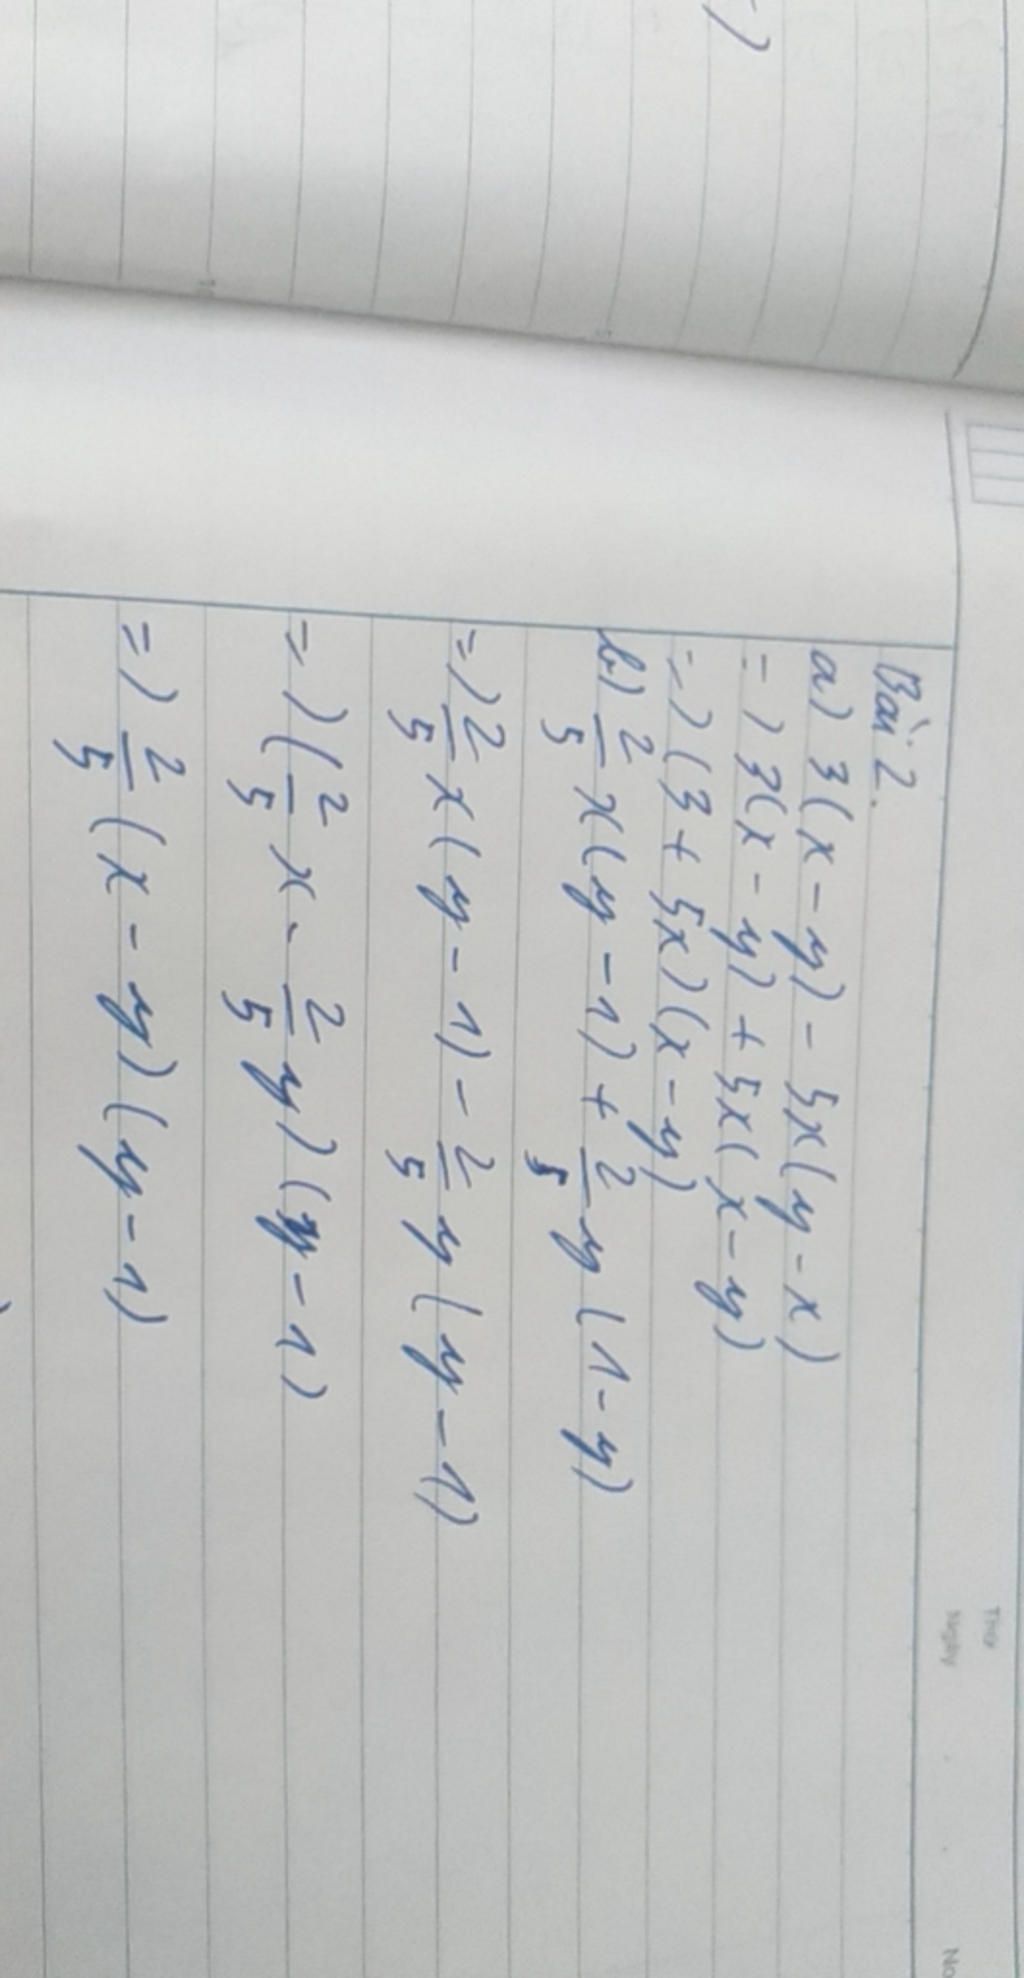 Thứ
Ngày . . No
Bài 2.
a) 3(x - y) - 5x(y - x)
=) 3(x - y) + 5x(x - y)
=) (3 + 5x)(x - y)
b) 2/5 x(y - 1) + 2/5 y(1 - y)
=) 2/5 x(y - 1) - 2/5 y(y - 1)
=) (2/5 x - 2/5 y)(y - 1)
=) 2/5 (x - y)(y - 1)